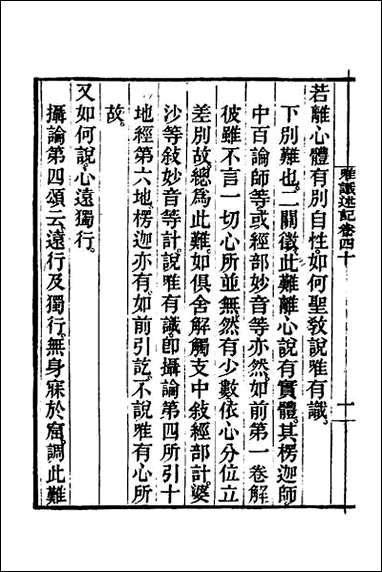 唯識述記卷四十
若離心體有別自性。如何聖敎說唯有識。
下別難也。二關徵。此難離心說有實體。其楞迦師。
中百論師等。或經部妙音等亦然。如前第一卷解
彼雖不言一切心所並無。然有少數依心分位立
差別故。總爲此難。如俱舍解觸支中敍經部計。婆
沙等敍妙音等計。說唯有識。卽攝論第四所引十
地經第六地。楞迦亦有。如前引訖。不說唯有心所
故。
又如何說。心遠獨行。
攝論第四頌云。遠行及獨行。無身寐於窟。調此難